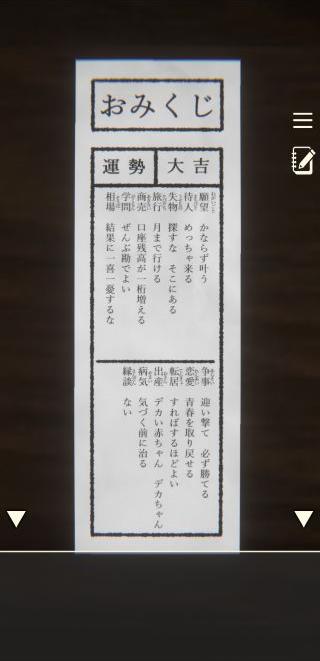 おみくじ
運勢 大吉
願望 かならず叶う
待人 めっちゃ来る
失物 探すな そこにある
旅行 月まで行ける
商売 口座残高が一桁増える
学問 ぜんぶ勘でよい
相場 結果に一喜一憂するな
争事 迎い撃て 必ず勝てる
恋愛 青春を取り戻せる
転居 すればするほどよい
出産 デカい赤ちゃん デカちゃん
病気 気づく前に治る
縁談 ない